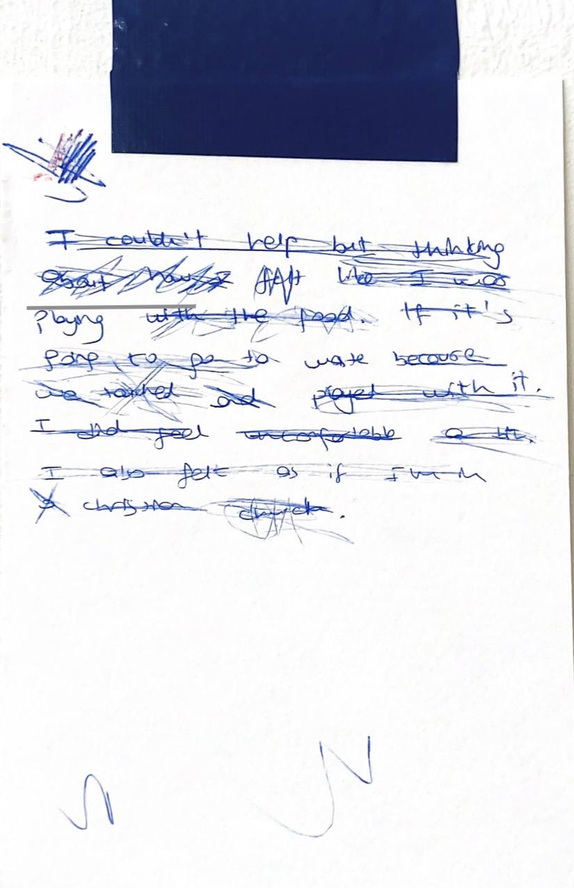 I couldn't help but thinking
about how I felt like I was
Playing with the food. If it's
going to go to waste because
we touched and played with it.
I did feel uncomfortable a lit.
I also felt as if I'm in
a christian church.